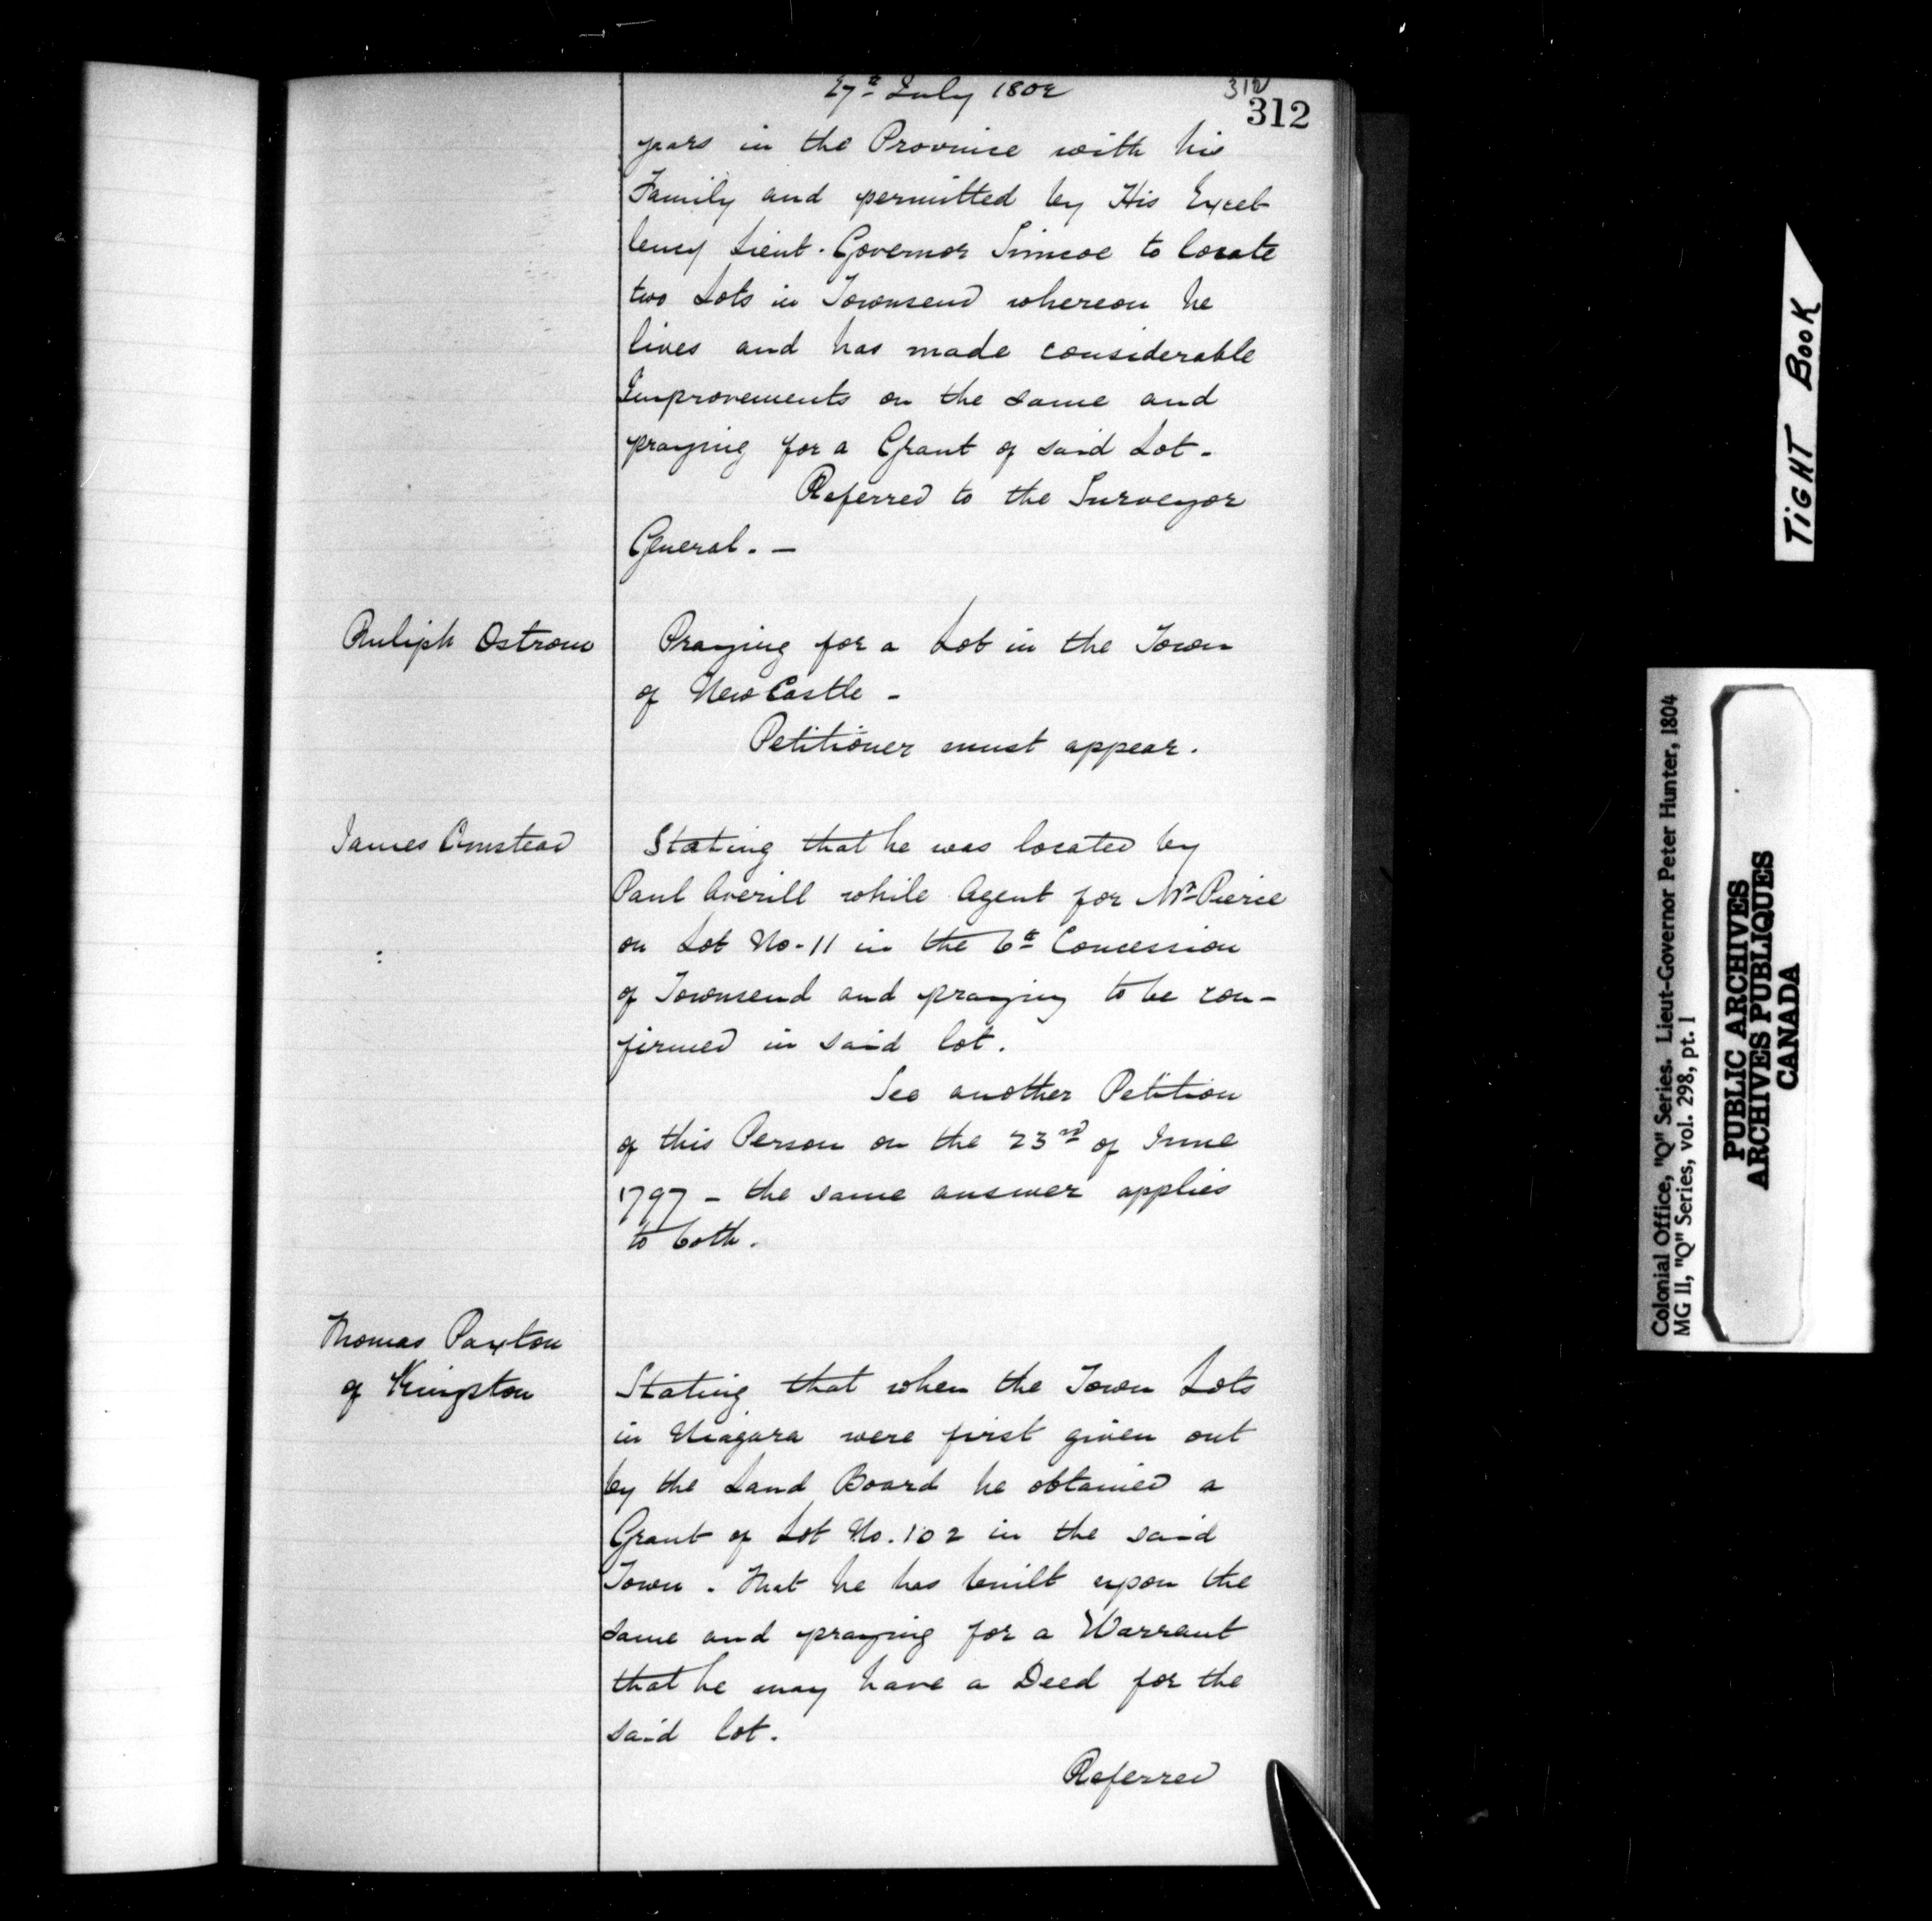 27th July 1802
312
312
years in the Province with his
Family and permitted by His Excel-
lency Lieut. Governor Simcoe to locate
two Lots in Townsend whereon he
lives and has made considerable
Improvements on the same and
praying for a Grant of said Lot.
Referred to the Surveyor
General. —
Ruliph Ostrom
Praying for a Lot in the Town
of New Castle -
Petitioner must appear.
James Omstead
Stating that he was located by
Paul Averill while Agent for Mr. Pierce
on Lot No. 11 in the 6th Concession
of Townsend and praying to be con-
firmed in said lot.
See another Petition
of this Person on the 23rd of June
1797 - the same answer applies
to both.
Thomas Paxton
of Kingston
Stating that when the Town Lots
in Niagara were first given out
by the Land Board he obtained a
Grant of Lot No. 102 in the said
Town. That he has built upon the
same and praying for a Warrant
that he may have a Deed for the
said lot.
Referred
TiGHT BooK
Colonial Office, "Q" Series. Lieut-Governor Peter Hunter, 1804
MG 11, "Q" Series, vol. 298, pt. 1
PUBLIC ARCHIVES
ARCHIVES PUBLIQUES
CANADA